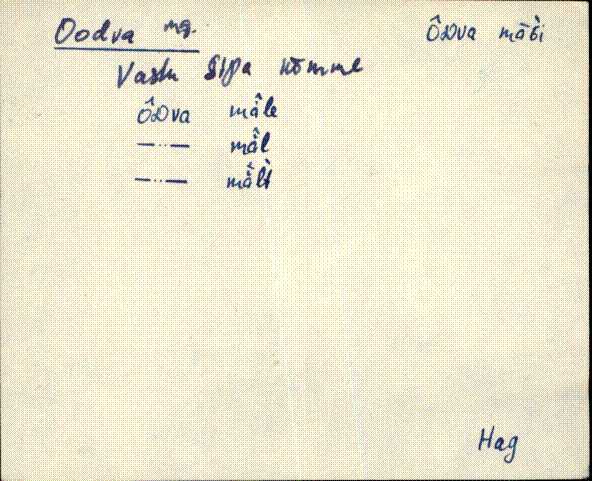 Oodva mg. ÔDva mäǵi
Vastu Sipa nõmme
ÔDva mâ̭le
—··— mâ̭l
—··— mâ̭lt
Hag